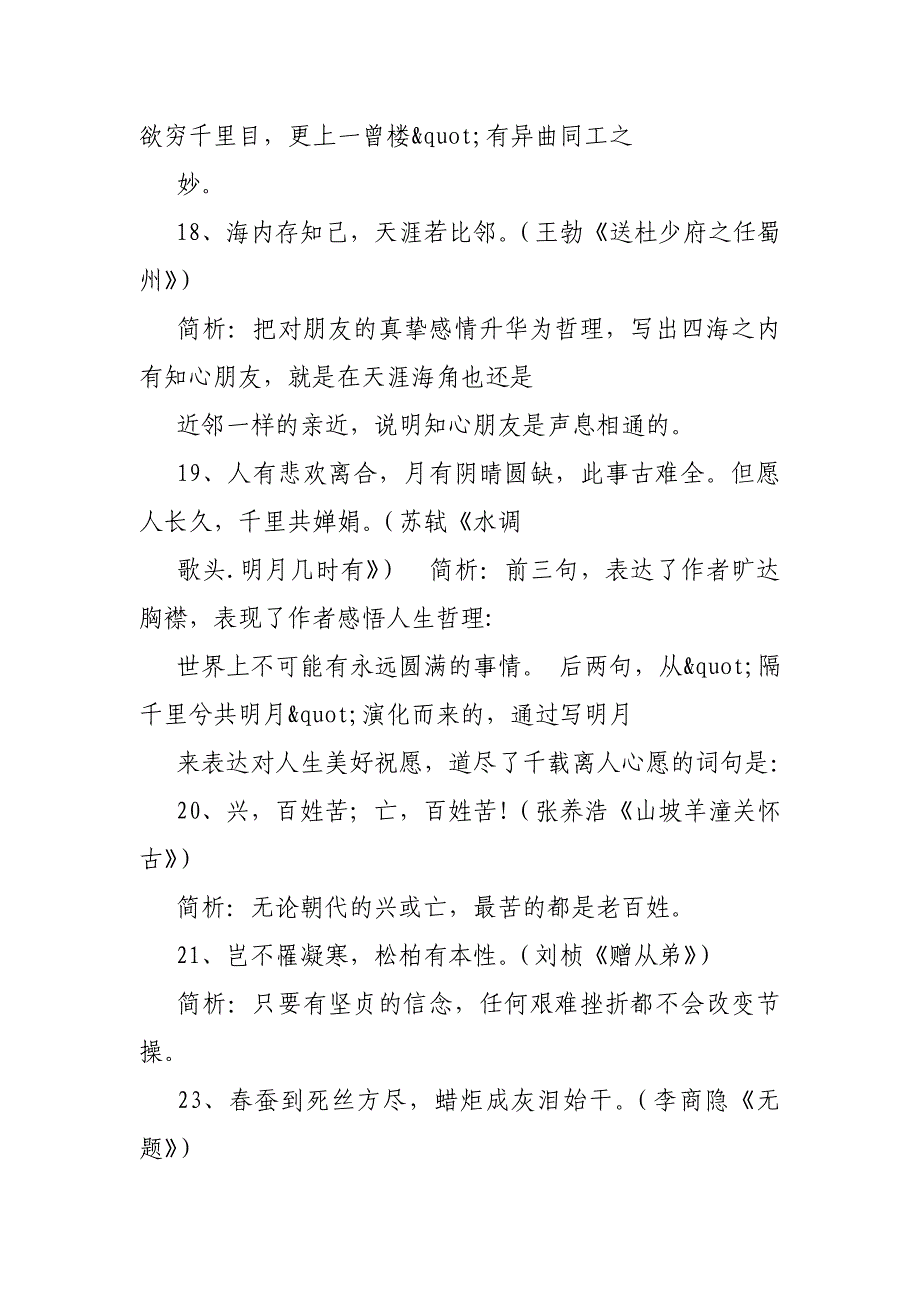 欲穷千里目，更上一曾楼&quot;有异曲同工之
妙。
18、海内存知己，天涯若比邻。(王勃《送杜少府之任蜀
州》)
简析：把对朋友的真挚感情升华为哲理，写出四海之内
有知心朋友，就是在天涯海角也还是
近邻一样的亲近，说明知心朋友是声息相通的。
19、人有悲欢离合，月有阴晴圆缺，此事古难全。但愿
人长久，千里共婵娟。(苏轼《水调
歌头.明月几时有》) 简析：前三句，表达了作者旷达
胸襟，表现了作者感悟人生哲理:
世界上不可能有永远圆满的事情。 后两句，从&quot;隔
千里兮共明月&quot;演化而来的，通过写明月
来表达对人生美好祝愿，道尽了千载离人心愿的词句是:
20、兴，百姓苦；亡，百姓苦!(张养浩《山坡羊潼关怀
古》)
简析：无论朝代的兴或亡，最苦的都是老百姓。
21、岂不罹凝寒，松柏有本性。(刘桢《赠从弟》)
简析：只要有坚贞的信念，任何艰难挫折都不会改变节
操。
23、春蚕到死丝方尽，蜡炬成灰泪始干。(李商隐《无
题》)